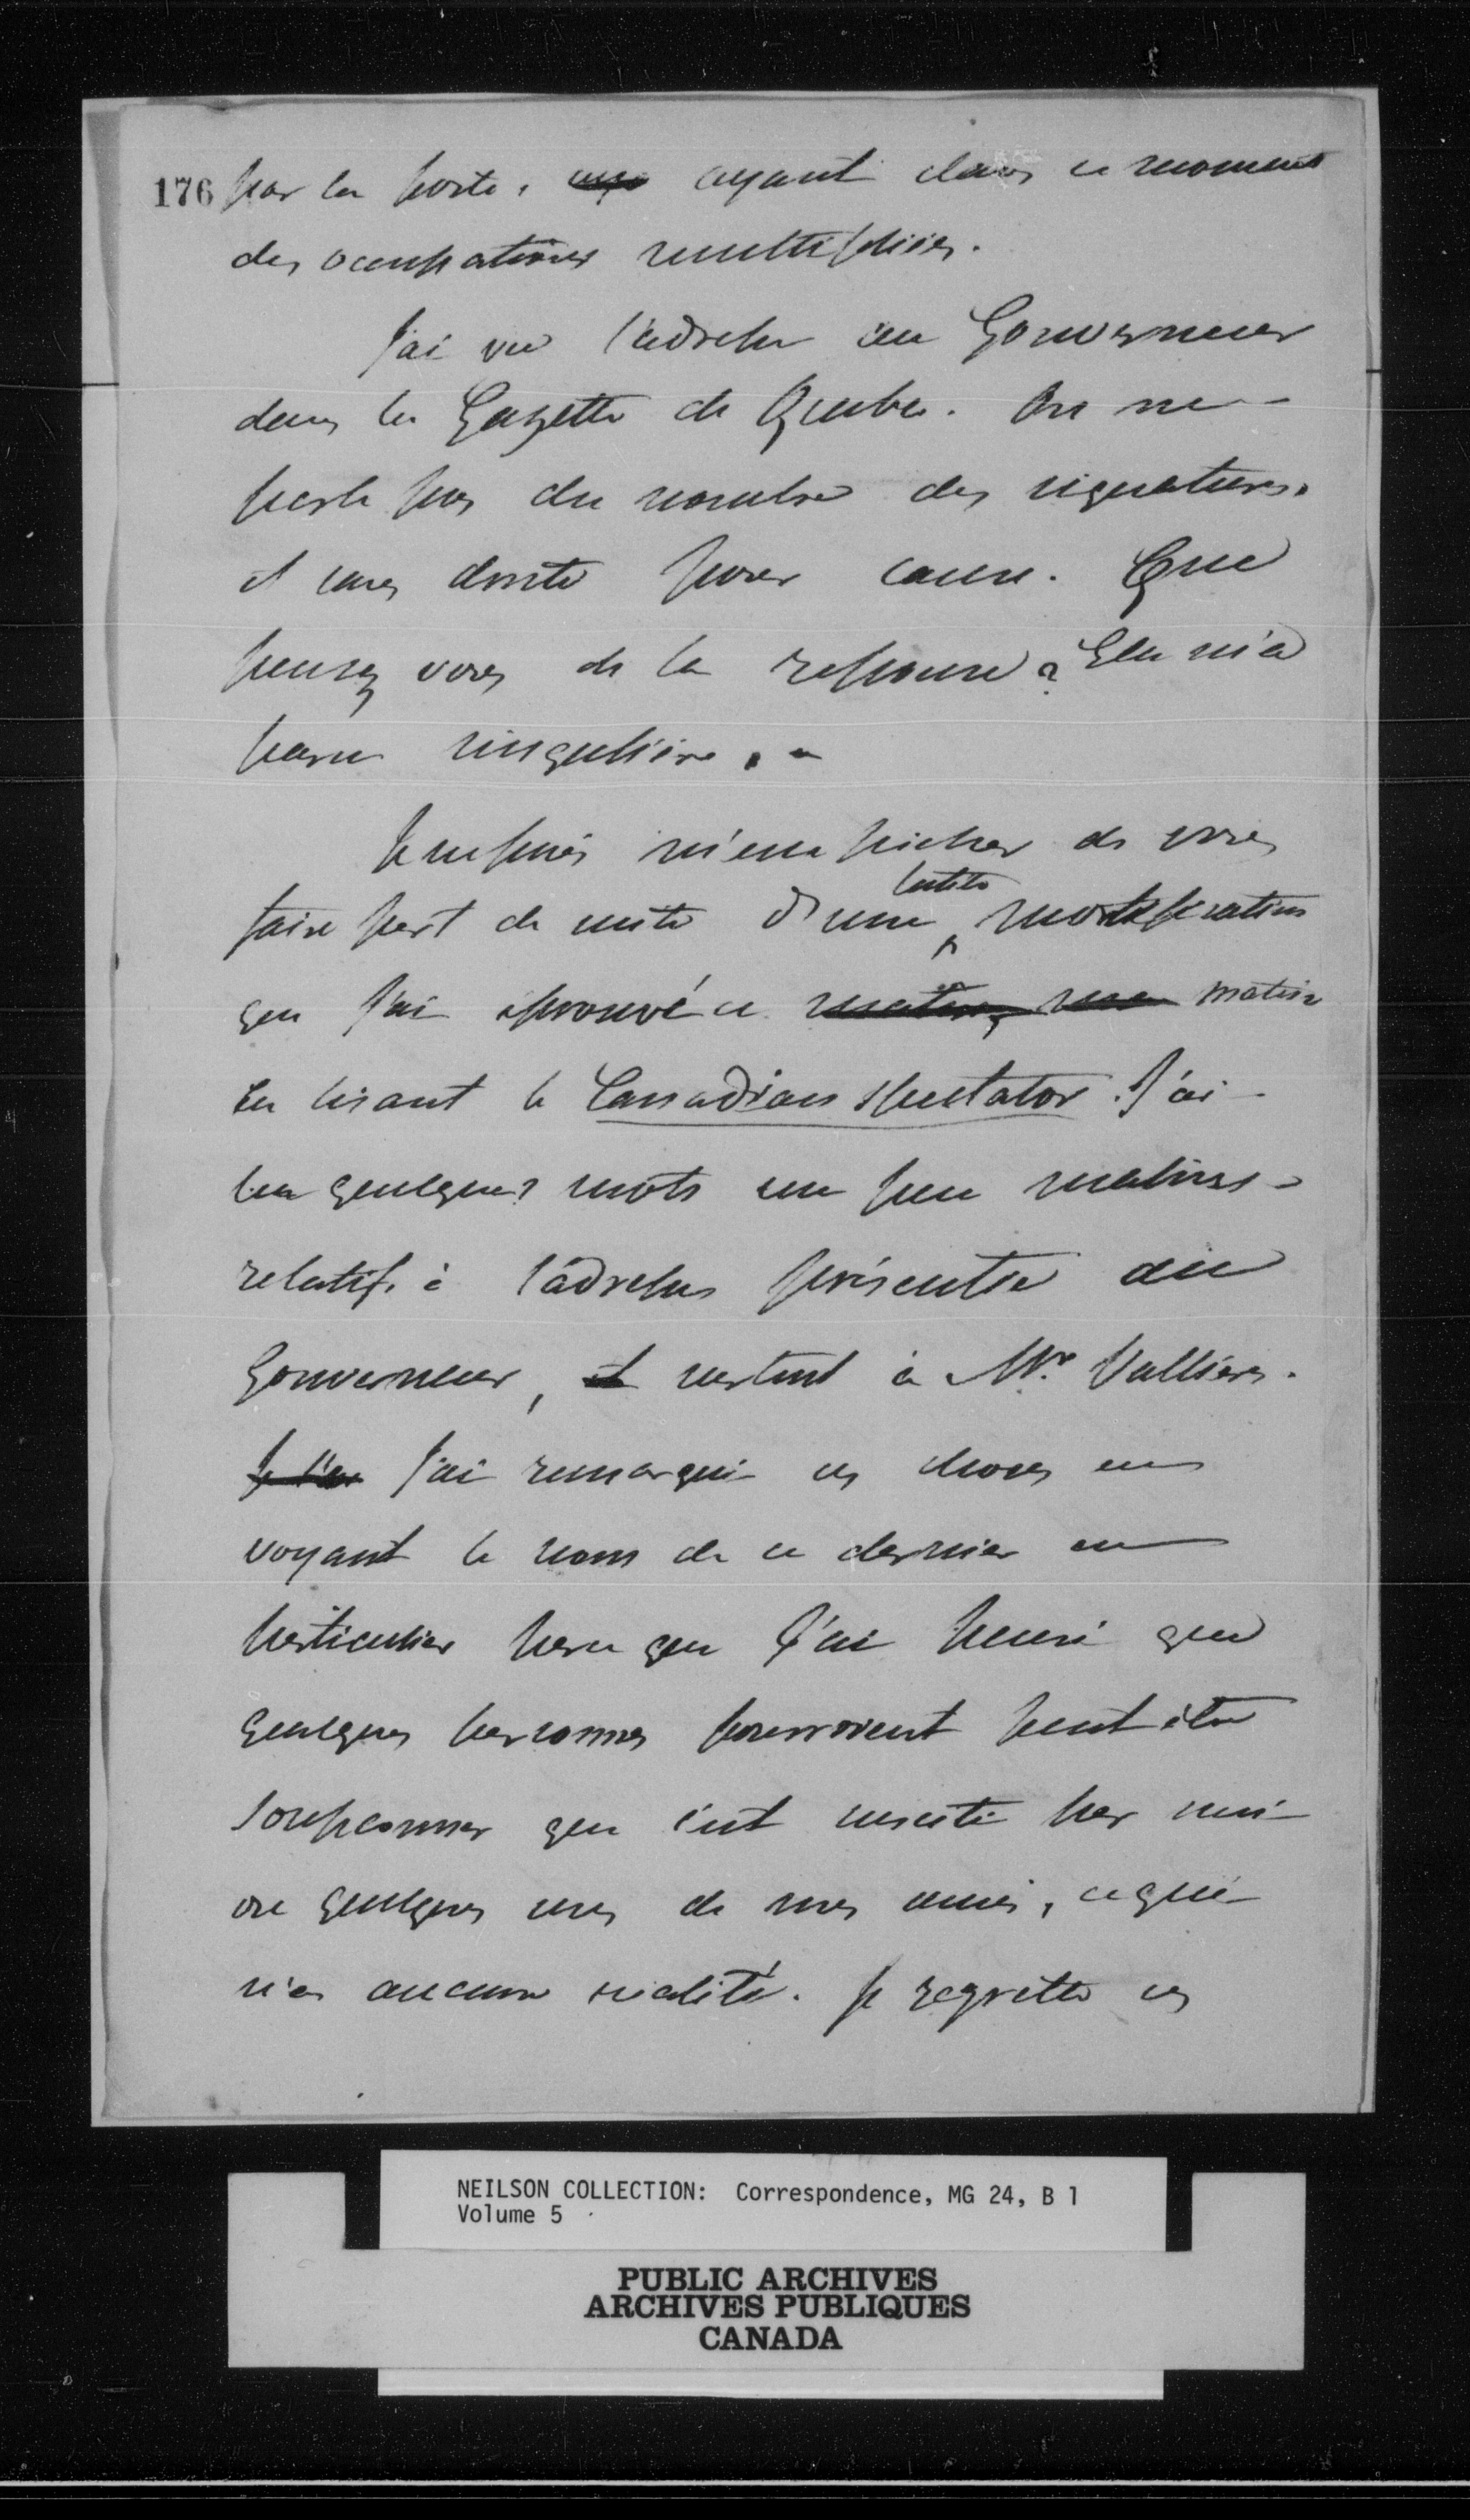 176 par la poste, ayant dans ce moment
des occupations multipliées.
J'ai vu l'adresse au Gouverneur
dans la Gazette de Quebec. On ne
parle pas du nombre des signatures.
et sans doute pour cause. Que
pensez vous de la response? Elle m'a
paru singulière.
Je ne puis m'empêcher de vous
faire part de suite d'une petite mortification
que j'ai éprouvé ce matin
en lisant le Canadian Spectator. J'ai
lu quelques mots un peu malins
relatifs à l'adresse présentée au
Gouverneur, et surtout à Mr. Vallières.
J'ai remarqué ces choses en
voyant le nom de ce dernier en
particulier parce que j'ai pensé que
quelques personnes pourroient peut être
soupconner que c'est suscité par moi
ou quelques uns de mes amis, ce qui
n'a aucune réalité. Je regrette ces
NEILSON COLLECTION: Correspondence, MG 24, B 1
Volume 5
PUBLIC ARCHIVES
ARCHIVES PUBLIQUES
CANADA